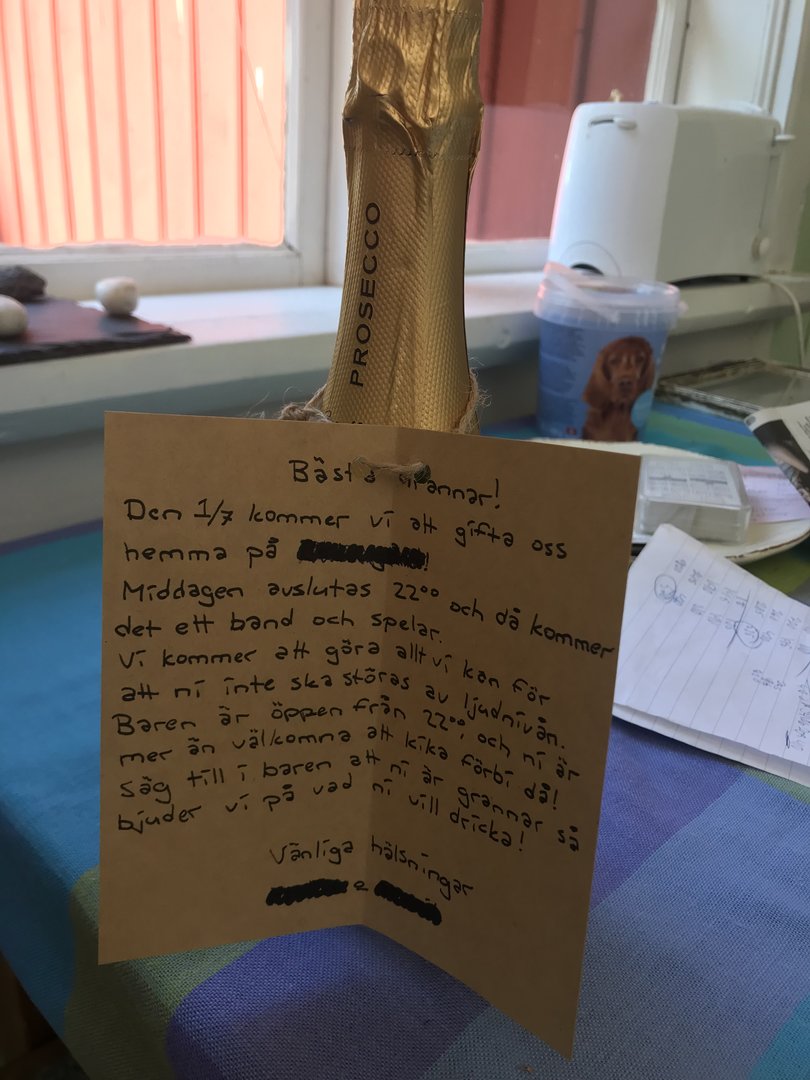 PROSECCO
Bästa Grannar!
Den 1/7 kommer vi att gifta oss
hemma på
Middagen avslutas 22⁰⁰ och då kommer
det ett band och spelar.
Vi kommer att göra allt vi kan för
att ni inte ska störas av ljudnivån.
Baren är öppen från 22⁰⁰, och ni är
mer än välkomna att kika förbi då!
Säg till i baren att ni är grannar så
bjuder vi på vad ni vill dricka!
Vänliga hälsningar